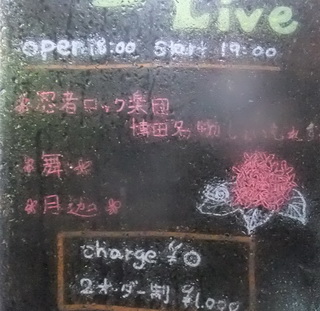 Live
open18:00 start 19:00
忍者ロック楽団
博田名物
舞
月迦
charge ¥0
2オーダー制 ¥1,000